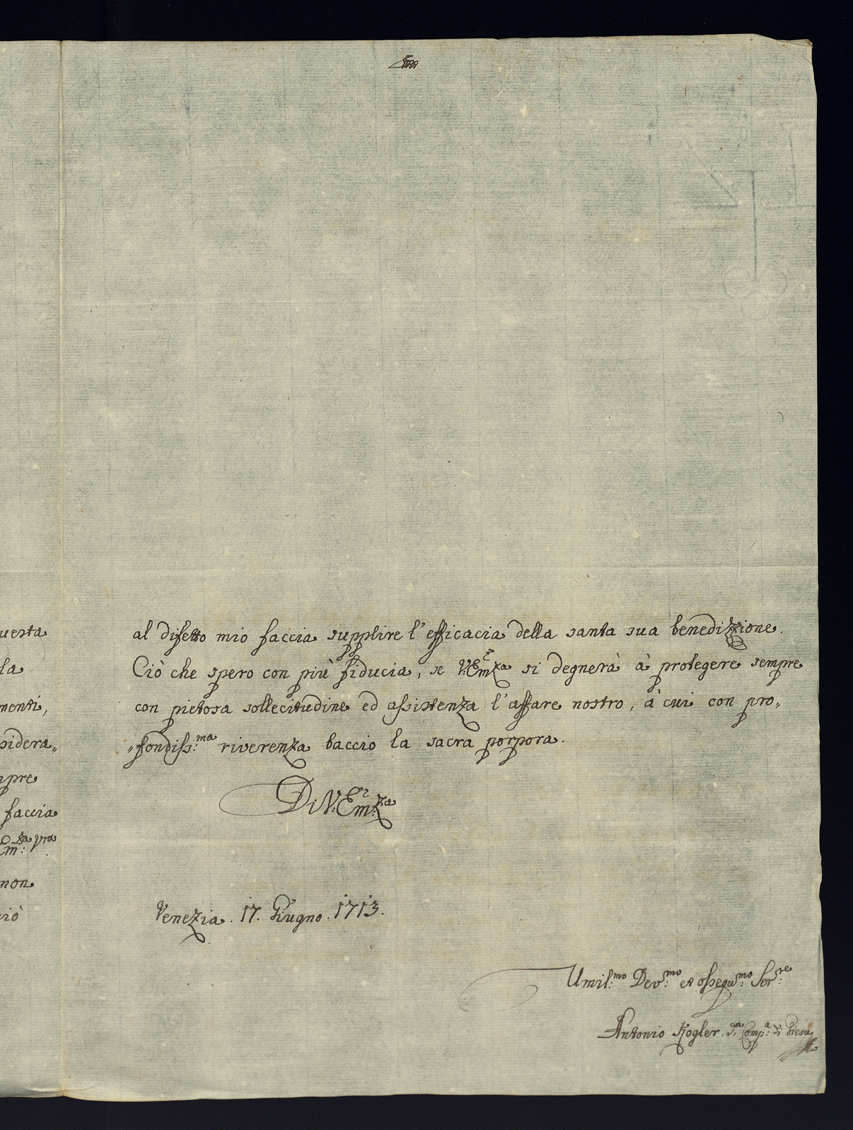 uesta
la
menti,
sidera„
mpre
faccia
Em:za vra
non
ciò
al difetto mio faccia supplire l'efficacia della santa sua benedizzione.
Ciò che spero con più fiducia, se V.Emza si degnerà à protegere sempre
con pietosa sollecitudine ed assistenza l'affare nostro, à cui con pro„
„fondiss:ma riverenza baccio la sacra porpora.
Di V. Em:za
Venezia. 17. Giugno. 1713.
Umil:mo Dev:mo et osseqm:o Ser:re
Antonio Kogler. d:a Comp:a di Giesù